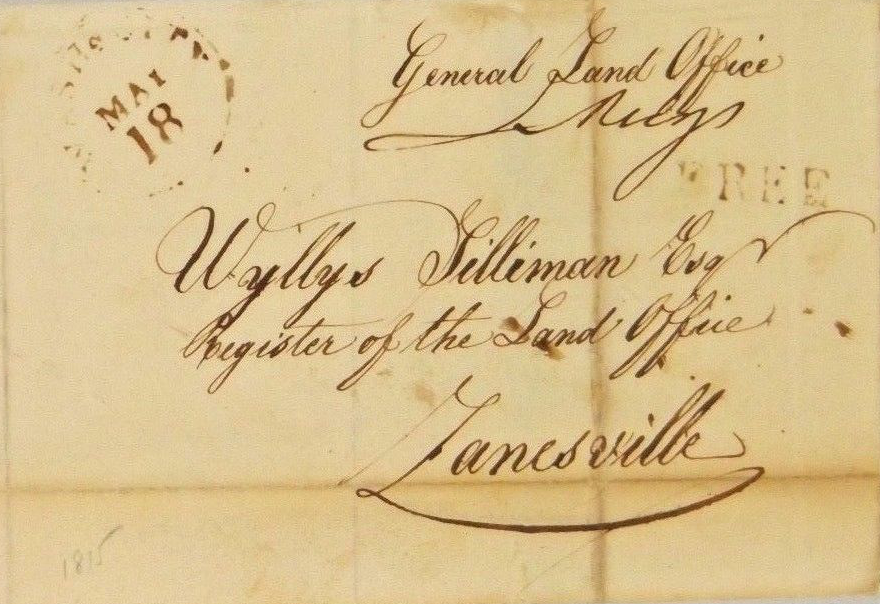 MAI
18
General Land Office
FREE
Wyllys Silliman Esqr
Register of the Land Office
Zanesville
1815